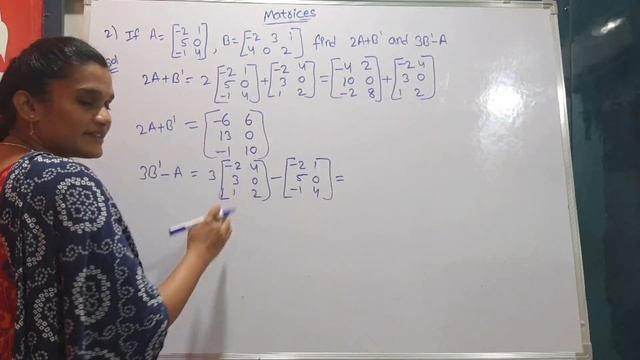 Matrices
2) If A = [-2 1; 5 0; -1 4], B = [-2 3 1; 4 0 2] find 2A+B' and 3B'-A
Sol
2A+B' = 2 [-2 1; 5 0; -1 4] + [-2 4; 3 0; 1 2] = [-4 2; 10 0; -2 8] + [-2 4; 3 0; 1 2]
2A+B' = [-6 6; 13 0; -1 10]
3B'-A = 3 [-2 4; 3 0; 1 2] - [-2 1; 5 0; -1 4] =